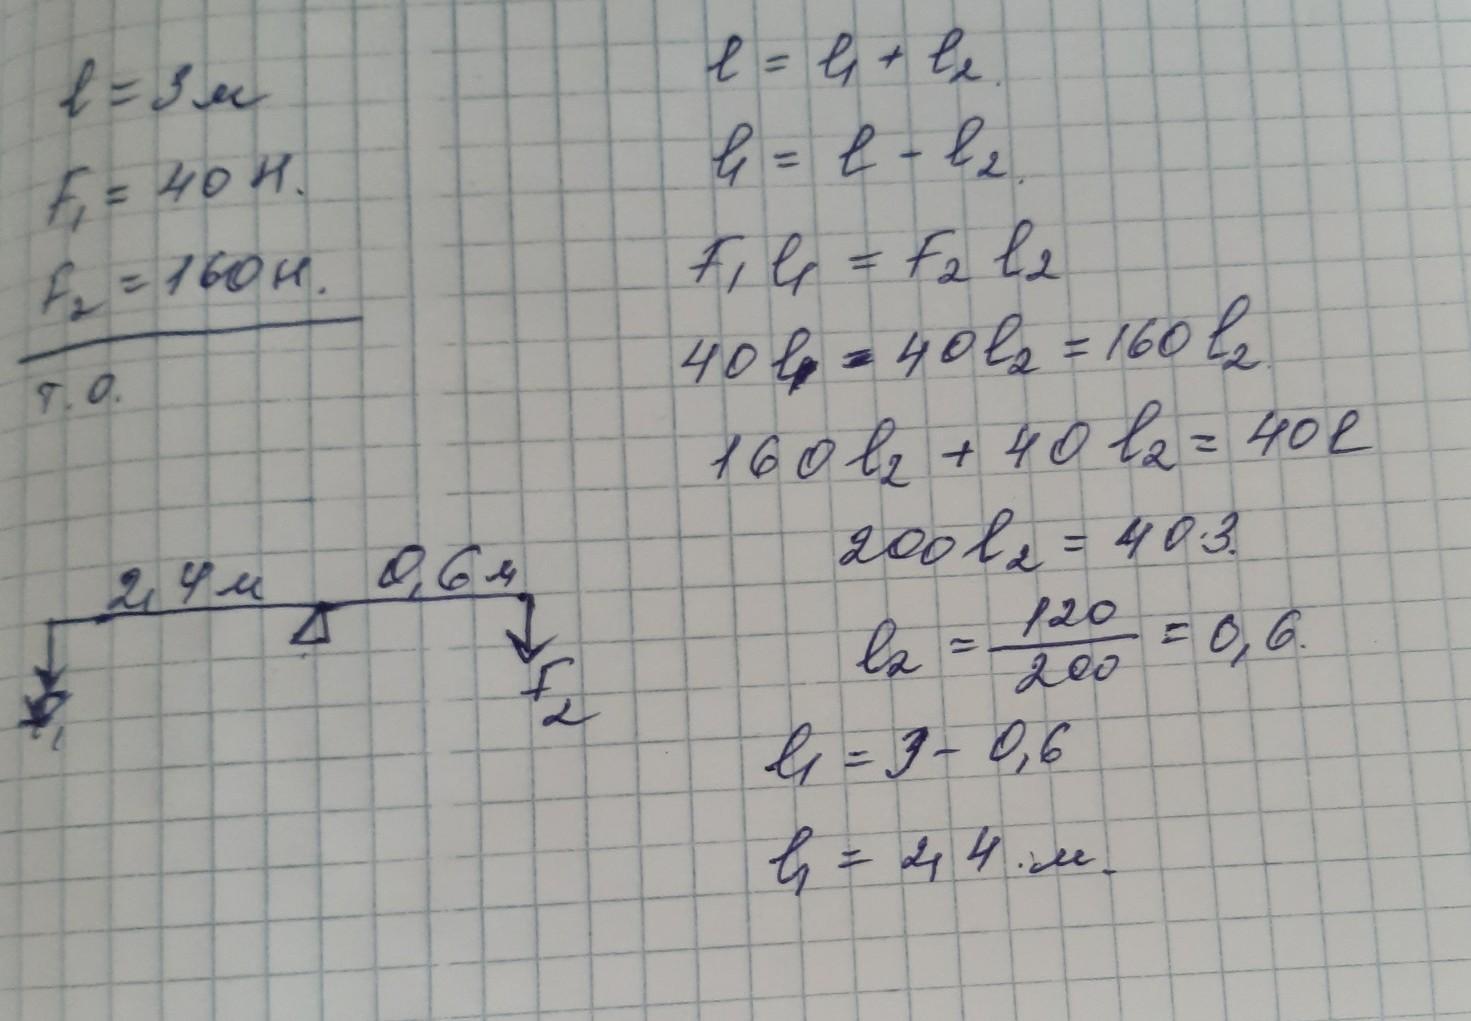 l = 3 м
F₁ = 40 Н.
F₂ = 160 Н.
т. О.
2,4 м 0,6 м
F₂
l = l₁ + l₂.
l₁ = l - l₂.
F₁ l₁ = F₂ l₂
40 l - 40 l₂ = 160 l₂.
160 l₂ + 40 l₂ = 40 l
200 l₂ = 40·3.
l₂ = 120/200 = 0,6.
l₁ = 3 - 0,6
l₁ = 2,4 м.